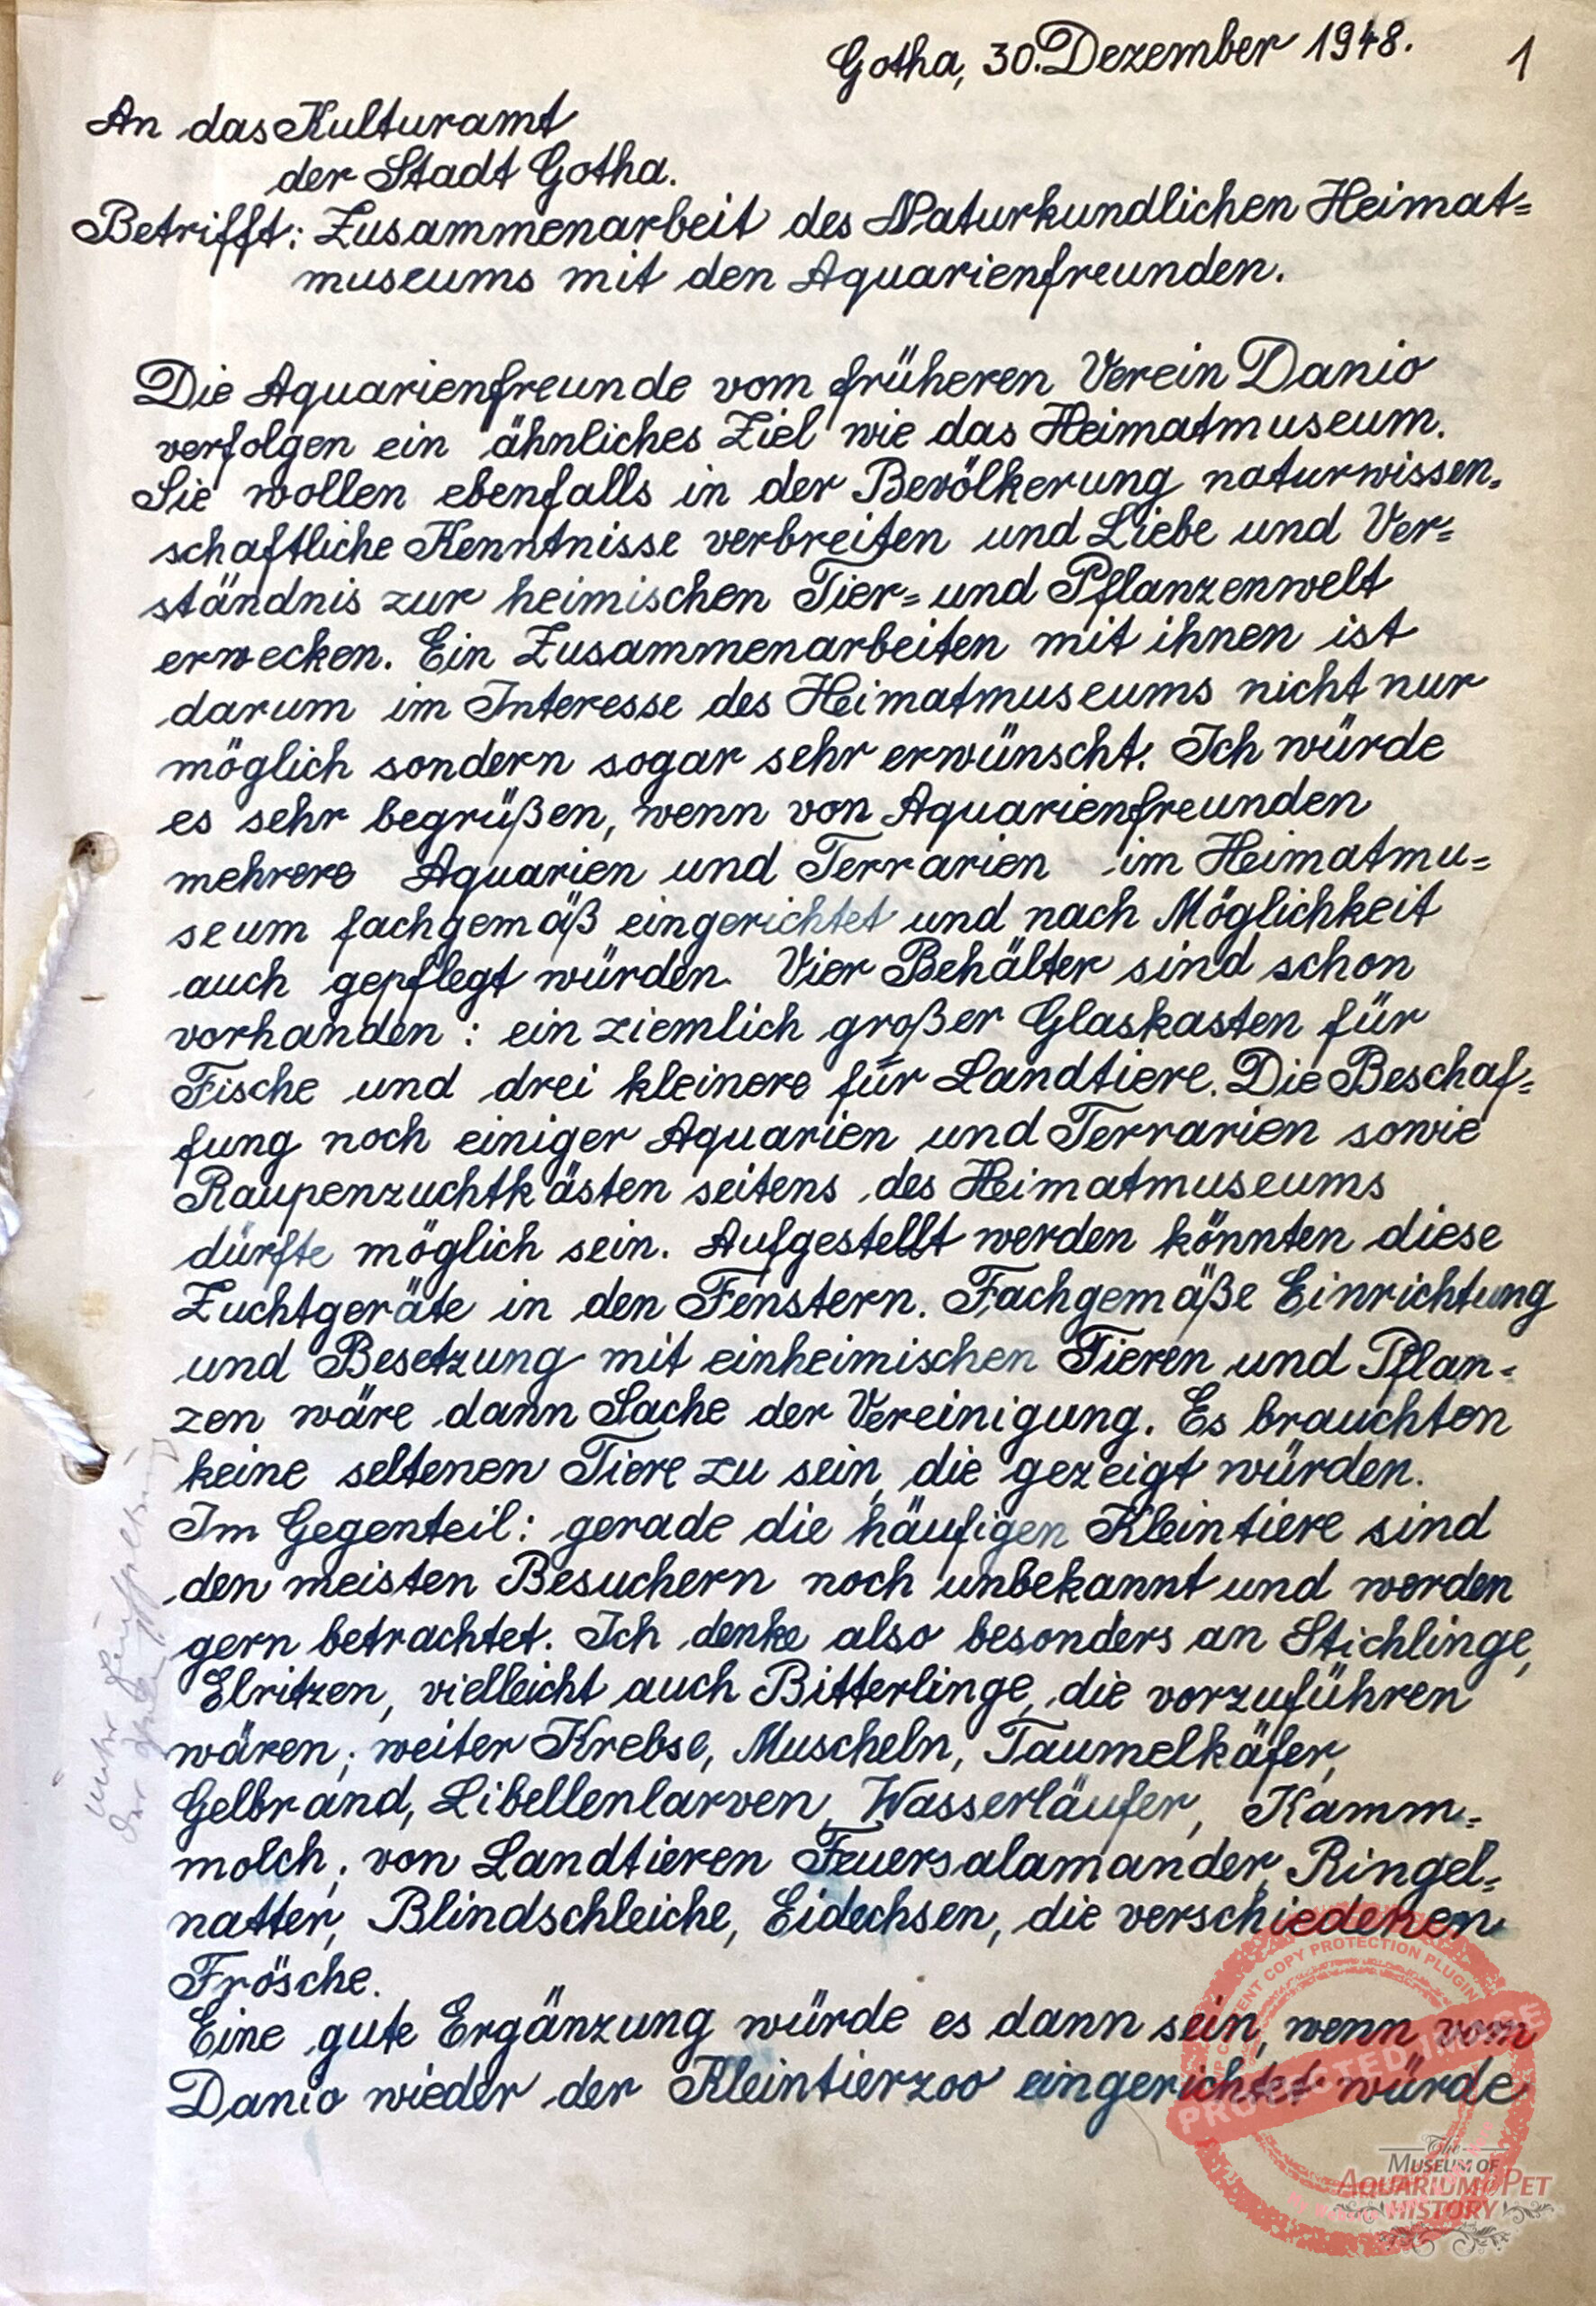 Gotha, 30. Dezember 1948.
1
An das Kulturamt
der Stadt Gotha.
Betrifft: Zusammenarbeit des Naturkundlichen Heimat=
museums mit den Aquarienfreunden.
Die Aquarienfreunde vom früheren Verein Danio
verfolgen ein ähnliches Ziel wie das Heimatmuseum.
Sie wollen ebenfalls in der Bevölkerung naturwissen=
schaftliche Kenntnisse verbreiten und Liebe und Ver=
ständnis zur heimischen Tier= und Pflanzenwelt
erwecken. Ein Zusammenarbeiten mit ihnen ist
darum im Interesse des Heimatmuseums nicht nur
möglich sondern sogar sehr erwünscht. Ich würde
es sehr begrüßen, wenn von Aquarienfreunden
mehrere Aquarien und Terrarien im Heimatmu=
seum fachgemäß eingerichtet und nach Möglichkeit
auch gepflegt würden. Vier Behälter sind schon
vorhanden: ein ziemlich großer Glaskasten für
Fische und drei kleinere für Landtiere. Die Beschaf=
fung noch einiger Aquarien und Terrarien sowie
Raupenzuchtkästen seitens des Heimatmuseums
dürfte möglich sein. Aufgestellt werden könnten diese
Zuchtgeräte in den Fenstern. Fachgemäße Einrichtung
und Besetzung mit einheimischen Tieren und Pflan=
zen wäre dann Sache der Vereinigung. Es brauchten
keine seltenen Tiere zu sein, die gezeigt würden.
Im Gegenteil: gerade die häufigen Kleintiere sind
den meisten Besuchern noch unbekannt und werden
gern betrachtet. Ich denke also besonders an Stichlinge,
Elritzen, vielleicht auch Bitterlinge, die vorzuführen
wären; weiter Krebse, Muscheln, Taumelkäfer,
Gelbrand, Libellenlarven, Wasserläufer, Kamm=
molch; von Landtieren Feuersalamander, Ringel=
natter, Blindschleiche, Eidechsen, die verschiedenen
Frösche.
Eine gute Ergänzung würde es dann sein, wenn vom
Danio wieder der Kleintierzoo eingerichtet würde
CONTENT COPY PROTECTION PLUGIN
PROTECTED IMAGE
The
MUSEUM OF
AQUARIUM & PET
HISTORY